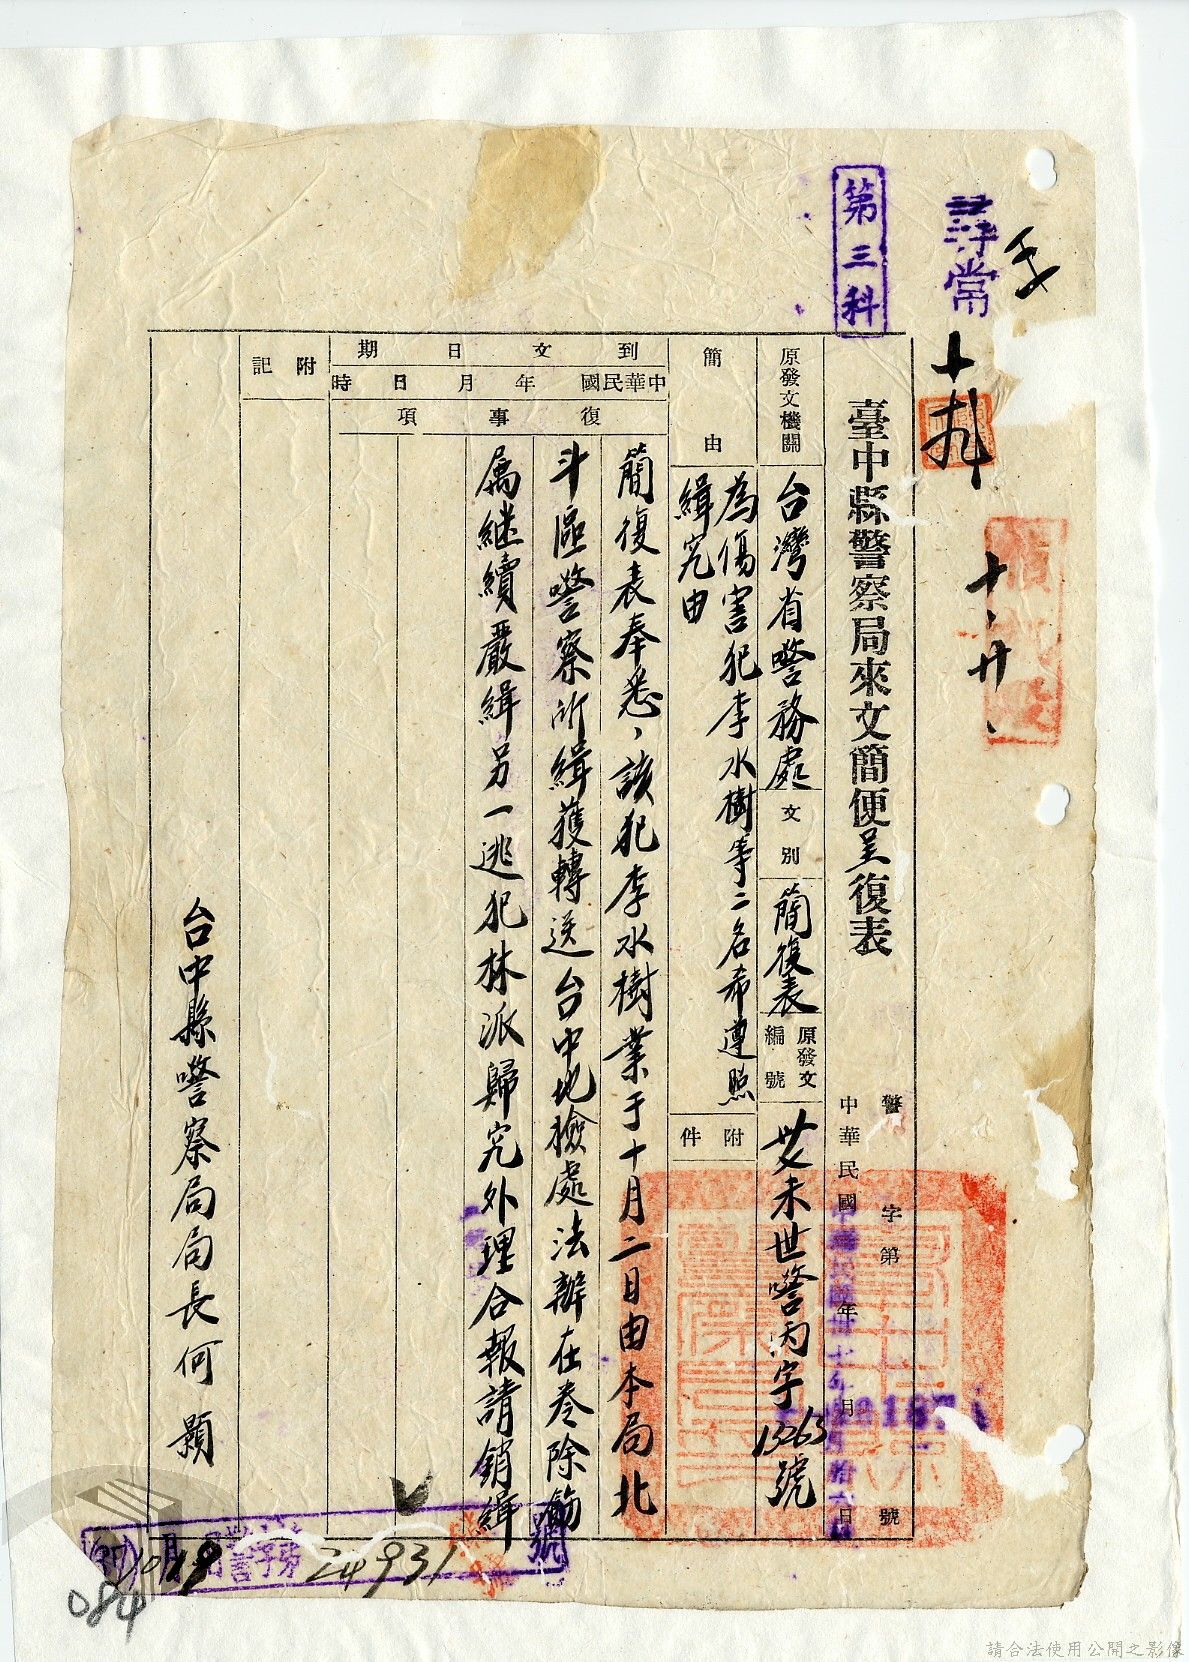 尋常
第三科
臺中縣警察局來文簡便呈復表
警 字第 號
中華民國 年 月 日
原發文機關
台灣省警務處
文別
簡復表
原發文編號
未世警丙字13263號
簡由
為傷害犯李水樹等二名希遵照
緝究由
附件
到文日期
中華民國 年 月 日 時
復事項
簡復表奉悉,該犯李水樹業于十月二日由本局北
斗區警察所緝獲轉送台中地檢處法辦在卷除飭
屬继續嚴緝另一逃犯林派歸究外理合報請銷緝
附記
台中縣警察局局長何顯
(37)10月19
24931
號
084
請合法使用公開之影像